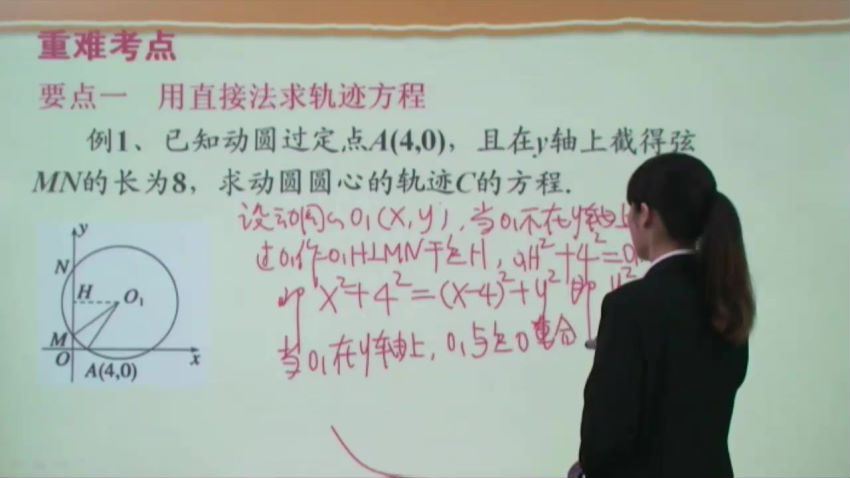 重难考点
要点一 用直接法求轨迹方程
例1、已知动圆过定点A(4,0)，且在y轴上截得弦
MN的长为8，求动圆圆心的轨迹C的方程.
设动圆心O₁(x,y),当O₁不在y轴上
过O₁作O₁H⊥MN于点H, O₁H²+4²=O₁
即 x²+4²=(x-4)²+y² 即 y²
当O₁在y轴上, O₁与点O重合
y
N
H
O₁
M
O
A(4,0)
x